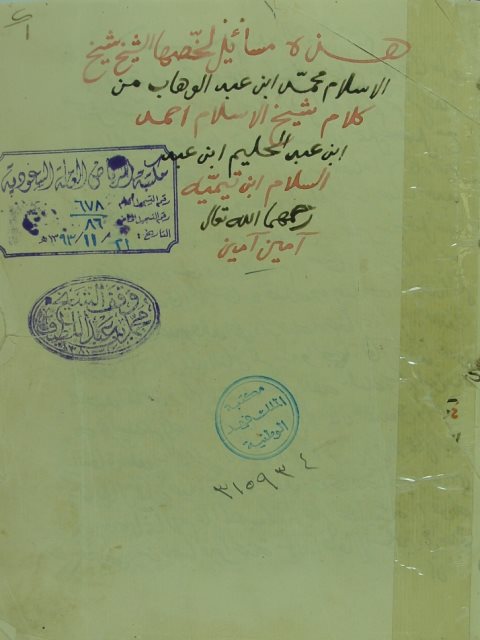 هذه مسائل لخصها الشيخ شيخ
الاسلام محمد ابن عبد الوهاب من
كلام شيخ الاسلام احمد
ابن عبد الحليم ابن عبد
السلام ابن تيميه
رحمهما الله تعالى
آمين آمين
مكتبة الرياض العامة السعودية
رقم التسجيل العام ٦٧٨
رقم التسجيل الخاص ٨٦
التاريخ ٢١ / ١١ / ١٣٩٣هـ
وقف الشيخ
محمد بن عبد اللطيف
١٣٨١
مكتبة
الملك فهد
الوطنية
٣١٥٩٣٤